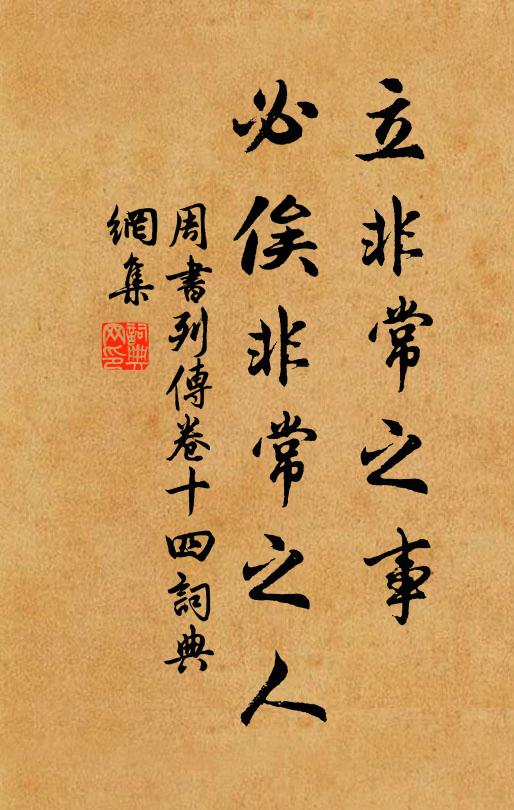 立非常之事
必俟非常之人
周書列傳卷十四詞典
網集
詞典
网印